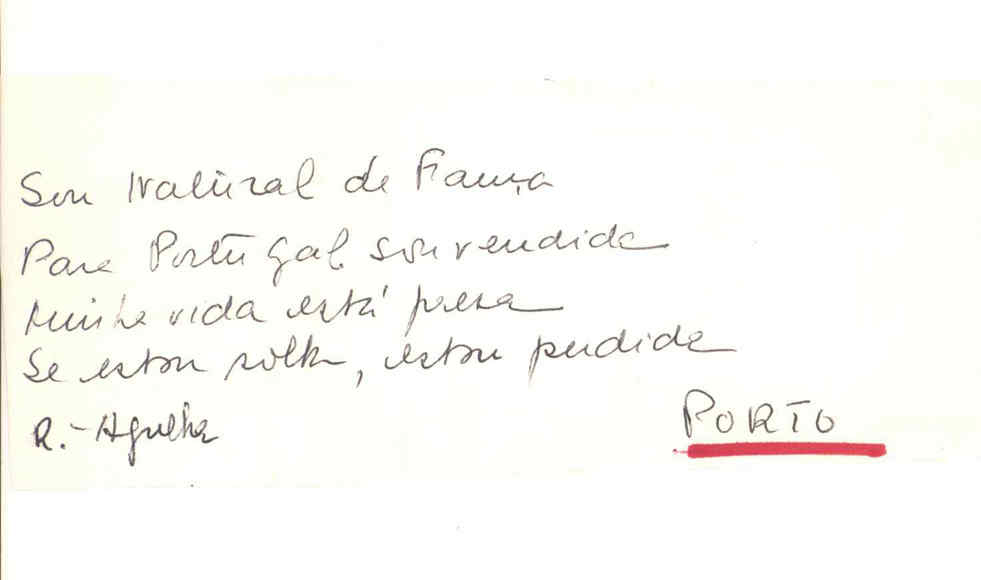 Sou Natural de França
Para Portugal sou vendida
Minha vida está presa
Se estou solta, estou perdida
R.- Agulha
PORTO